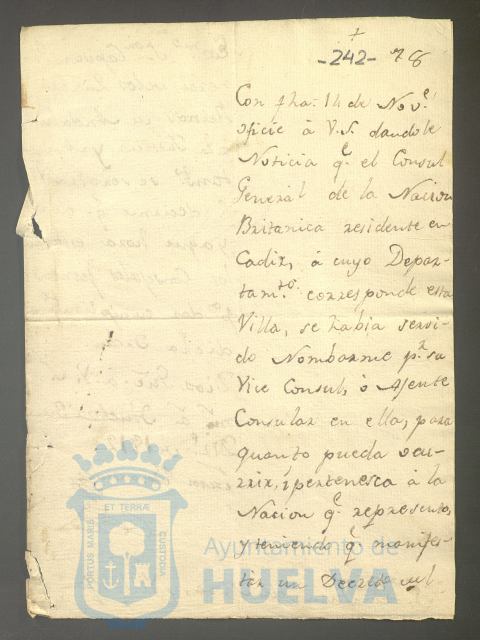 -242- 78
Con fha. 14 de Nov.e
oficié à V.S. dandole
Noticia q.e el Consul
General de la Nacion
Britanica residente en
Cadiz, à cuyo Depar-
tam.to corresponde esta
Villa, se habia servi-
do Nombarme p.r su
Vice Consul, ò Ajente
Consular en ella, para
quanto pueda ocu-
rrir, i pertenesca à la
Nacion q.e represento,
y teniendo q.e manifes-
tar un Decreto del
PORTUS MARIS ET TERRÆ CUSTODIA
Ayuntamiento de
HUELVA